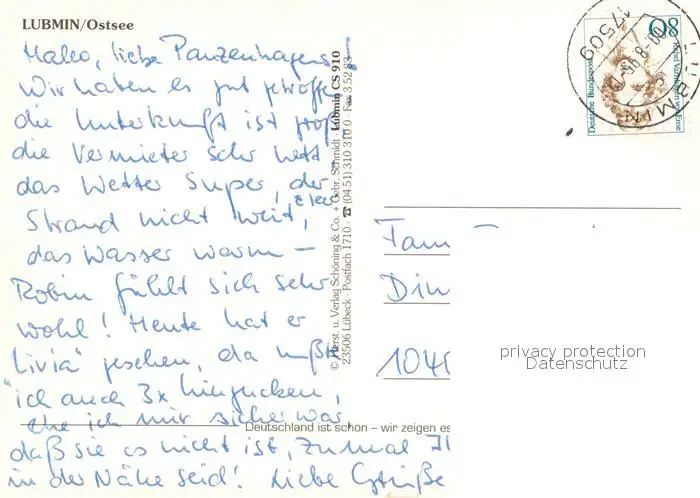 LUBMIN/Ostsee
Hallo, liebe Panzenhagens!
Wir haben es gut getroffen
die Unterkunft ist groß,
die Vermieter sehr nett,
das Wetter super, der
Strand nicht weit,
das Wasser warm –
Robin fühlt sich sehr
wohl! Heute hat er
"Livia" gesehen, da mußte
ich auch 3x hingucken,
ehe ich mir sicher war,
daß sie es nicht ist, zumal Ih
in der Nähe seid! Liebe Grüße
© Herst. u. Verlag Schöning & Co. + Gebr. Schmidt · Lubmin CS 910
23506 Lübeck · Postfach 1710 · ☎ (04 51) 310 310 · Fax 3 52 83
Deutschland ist schön – wir zeigen es
80
Deutsche Bundespost
LUBMIN
17509
Fam
Din
104
privacy protection
Datenschutz